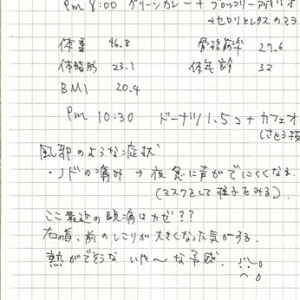 Pm 8:00 グリーンカレー + ブロッコリーアボカド
+セロリとレタスのマヨ
体重 46.8 骨格筋率 27.6
体脂肪 23.1 体年齢 32
BMI 20.4
Pm 10:30 ドーナツ1.5コ+カフェオ
(さとう抜
風邪のような症状
・ノドの痛み → 夜急に声がでにくくなる。
(マスクをして様子をみる)
ここ最近の頭痛はカゼ??
右の首、前のしこりが大きくなった気がする。
熱がでそうな いや〜な予感。